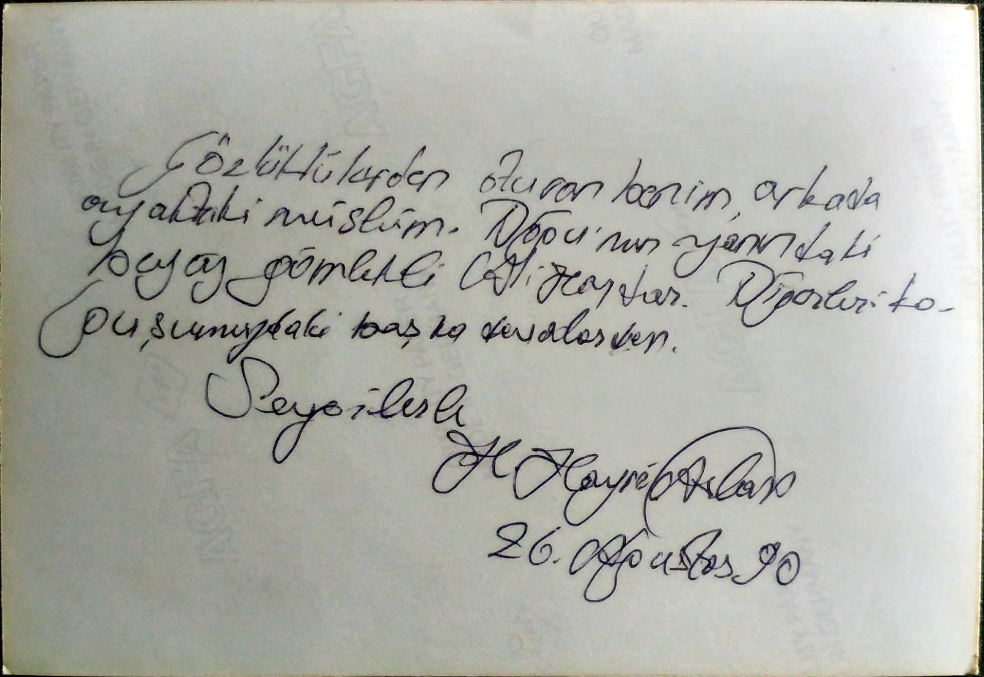 Gözlüklülerden oturan benim, arkada
ayaktaki müslüm. Doğu'nun yanındaki
beyaz gömlekli Ali Haydar. Diğerleri ko-
ğuşumuzdaki başka
Sevgilerle
H. Hayri Aslan
26. Ağustos 90